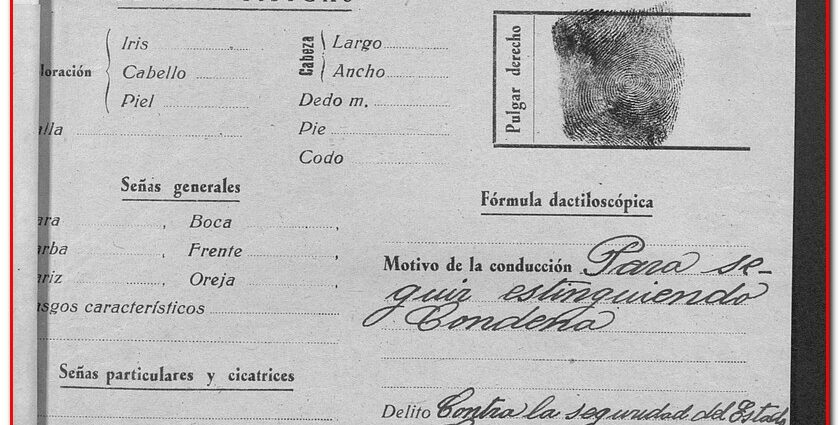 Iris
Cabello
Piel
loración
alla
Cabeza
Largo
Ancho
Dedo m.
Pie
Codo
Pulgar derecho
Señas generales
ara , Boca ,
arba , Frente ,
ariz , Oreja ,
asgos característicos
Señas particulares y cicatrices
Fórmula dactiloscópica
Motivo de la conducción Para se-
guir estinguiendo
Condena
Delito Contra la seguridad del Estado